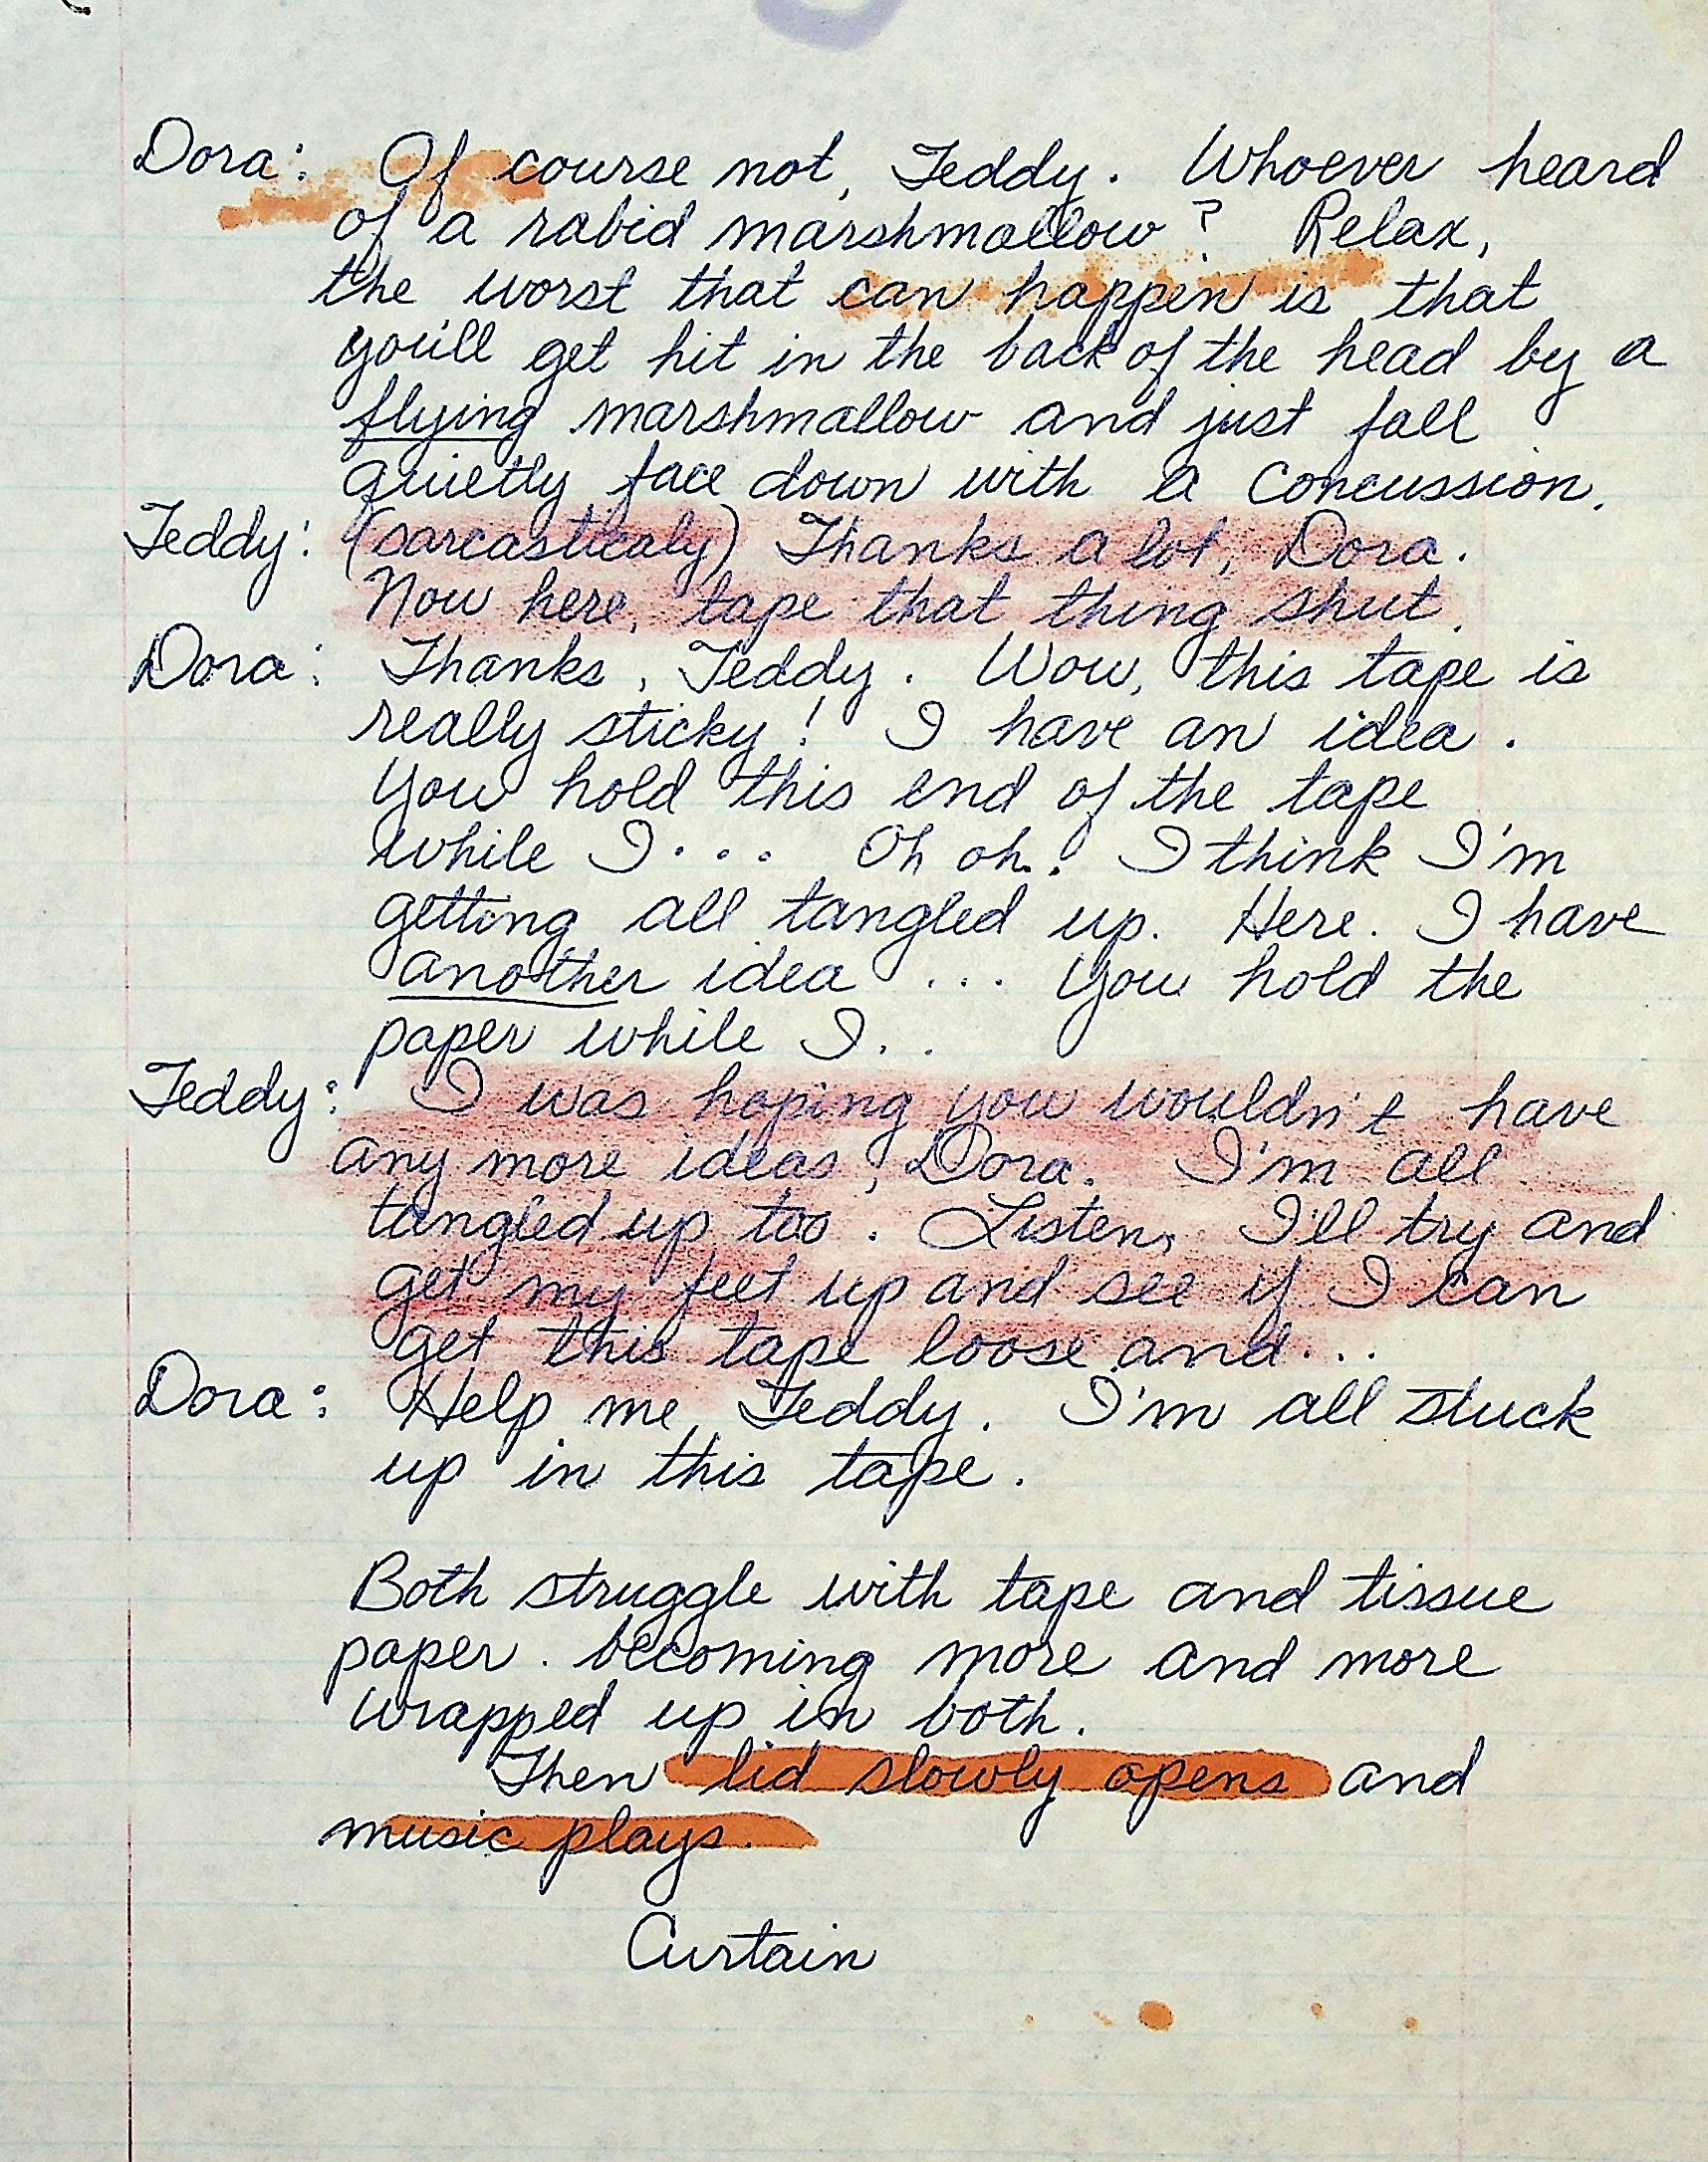 Dora: Of course not, Teddy. Whoever heard
of a rabid marshmallow? Relax,
the worst that can happen is that
you'll get hit in the back of the head by a
flying marshmallow and just fall
quietly face down with a concussion.
Teddy: (sarcasticaly) Thanks a lot, Dora.
Now here, tape that thing shut.
Dora: Thanks, Teddy. Wow, this tape is
really sticky! I have an idea.
You hold this end of the tape
while I... Oh oh! I think I'm
getting all tangled up. Here. I have
another idea ... You hold the
paper while I..
Teddy: I was hoping you wouldn't have
any more ideas, Dora. I'm all
tangled up too. Listen, I'll try and
get my feet up and see if I can
get this tape loose and...
Dora: Help me, Teddy. I'm all stuck
up in this tape.
Both struggle with tape and tissue
paper. becoming more and more
wrapped up in both.
Then lid slowly opens and
music plays.
Curtain